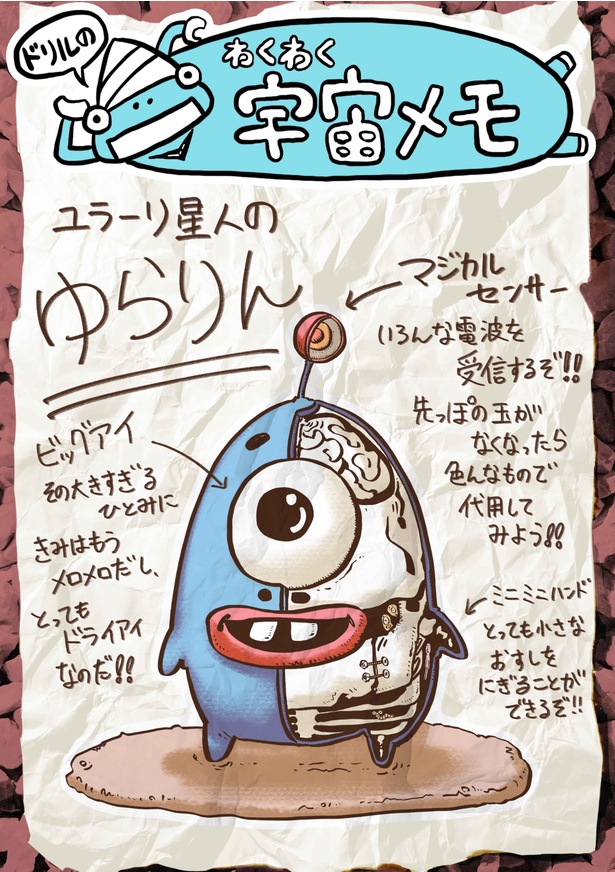 ドリルの
わくわく
宇宙メモ
ユラーリ星人の
ゆらりん
マジカル
センサー
いろんな電波を
受信するぞ!!
先っぽの玉が
なくなったら
色んなもので
代用して
みよう!!
ビッグアイ
その大きすぎる
ひとみに
きみはもう
メロメロだし、
とっても
ドライアイ
なのだ!!
ミニミニハンド
とっても小さな
おすしを
にぎることが
できるぞ!!